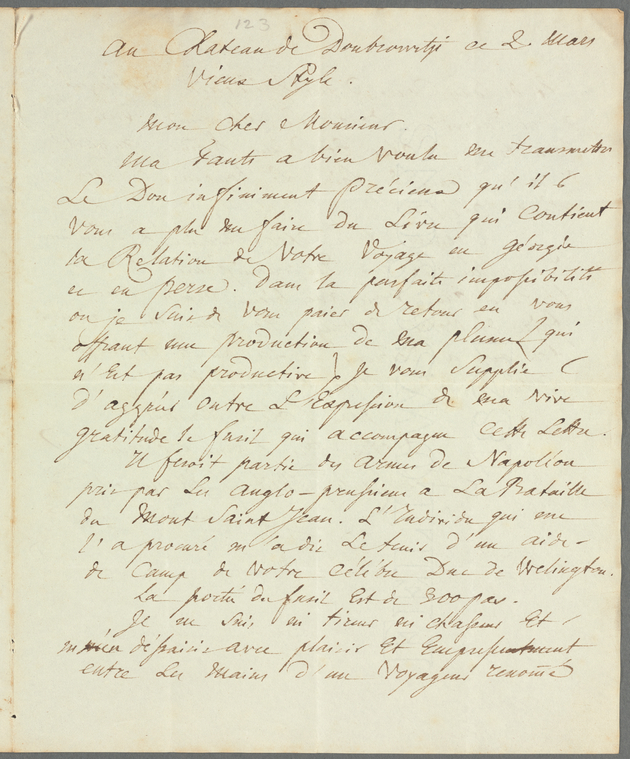 123
au Chateau de Doubrowitzi ce 2. Mars
Vieux Style.
Mon cher Monsieur.
Ma Tante a bien voulu me transmettre
Le Don infiniment précieux qu'il
vous a plu me faire du Livre qui contient
la Relation de Votre Voyage en Géorgie
et en Perse. Dans la parfaite impossibilité
ou je suis de vous paier de retour en vous
offrant une production de ma plume (qui
n'Est pas productive) Je vous Supplie
d'aggréer entre L'Expression de ma vive
gratitude le fusil qui accompagne cette Lettre.
Il fesoit partie des armes de Napoléon
pris par Les Anglo-prussiens a La Bataille
du Mont Saint Jean. L'Individu qui me
l'a procuré m'a dit Le tenir d'un aide-
de Camp de Votre célèbre Duc de Welington.
La portée du fusil Est de 300 pas.
Je ne suis ni tireur ni chasseur Et
m'en déssaisis avec plaisir Et Empressement
entre Les Mains d'un Voyageur renommé